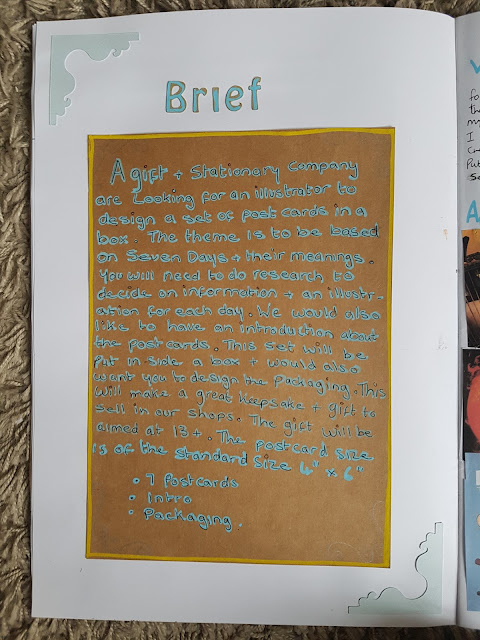 Brief
A gift + Stationary Company
are Looking for an illustrator to
design a set of post cards in a
box. The theme is to be based
on Seven Days + their meanings.
You will need to do research to
decide on information + an illustr-
ation for each day. We would also
like to have an introduction about
the postcards. This set will be
put in side a box + would also
want you to design the packaging. This
will make a great Keepsake + gift to
sell in our shops. The gift will be
aimed at 13+. The postcard size
is of the standard size 6" x 6"
• 7 Postcards
• Intro
• Packaging.
fo
I